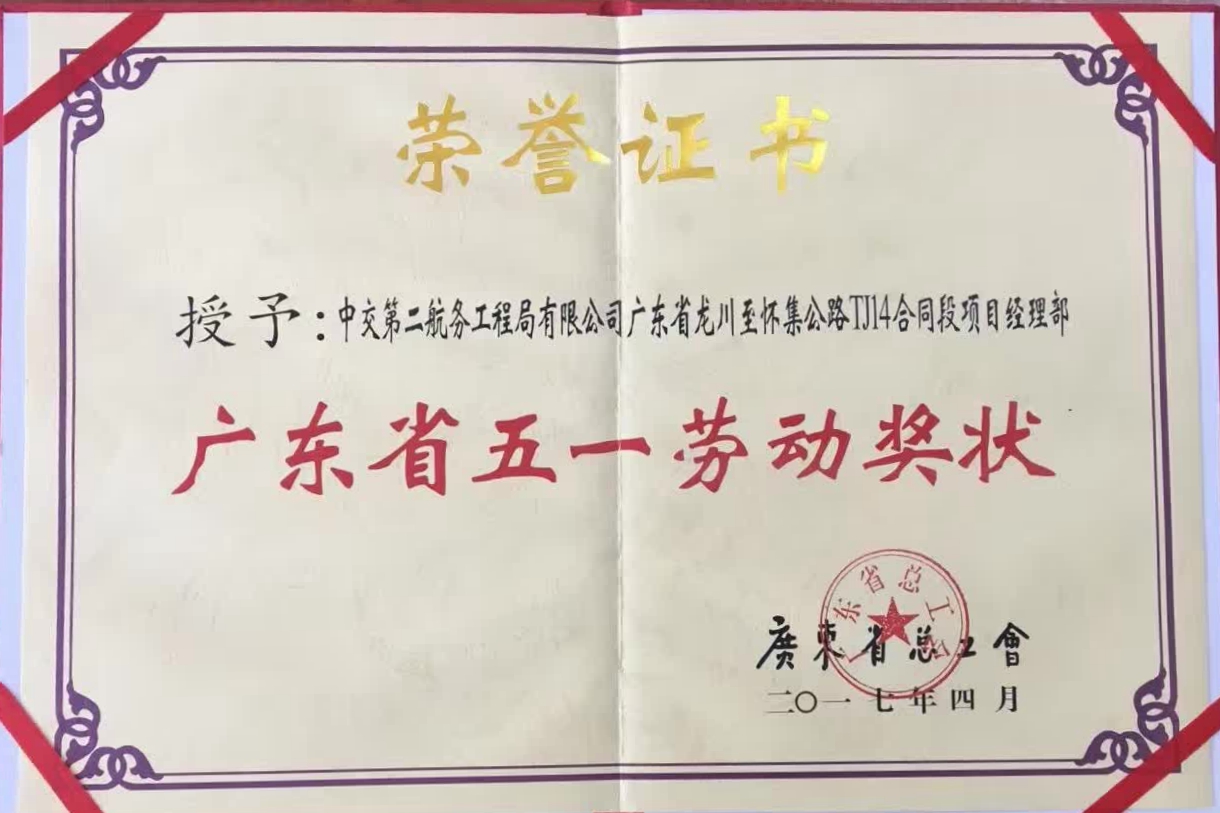 荣誉证书
授予:中交第二航务工程局有限公司广东省龙川至怀集公路TJ14合同段项目经理部
广东省五一劳动奖状
广东省总工会
廣東省总工會
二〇一七年四月